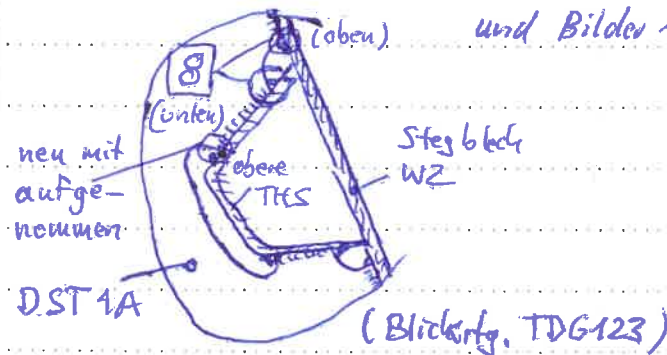 und Bilder
(oben)
8
(unten)
neu mit
aufge-
nommen
obere
THS
Stegblech
WZ
DST 1A
(Blickrtg. TDG123)